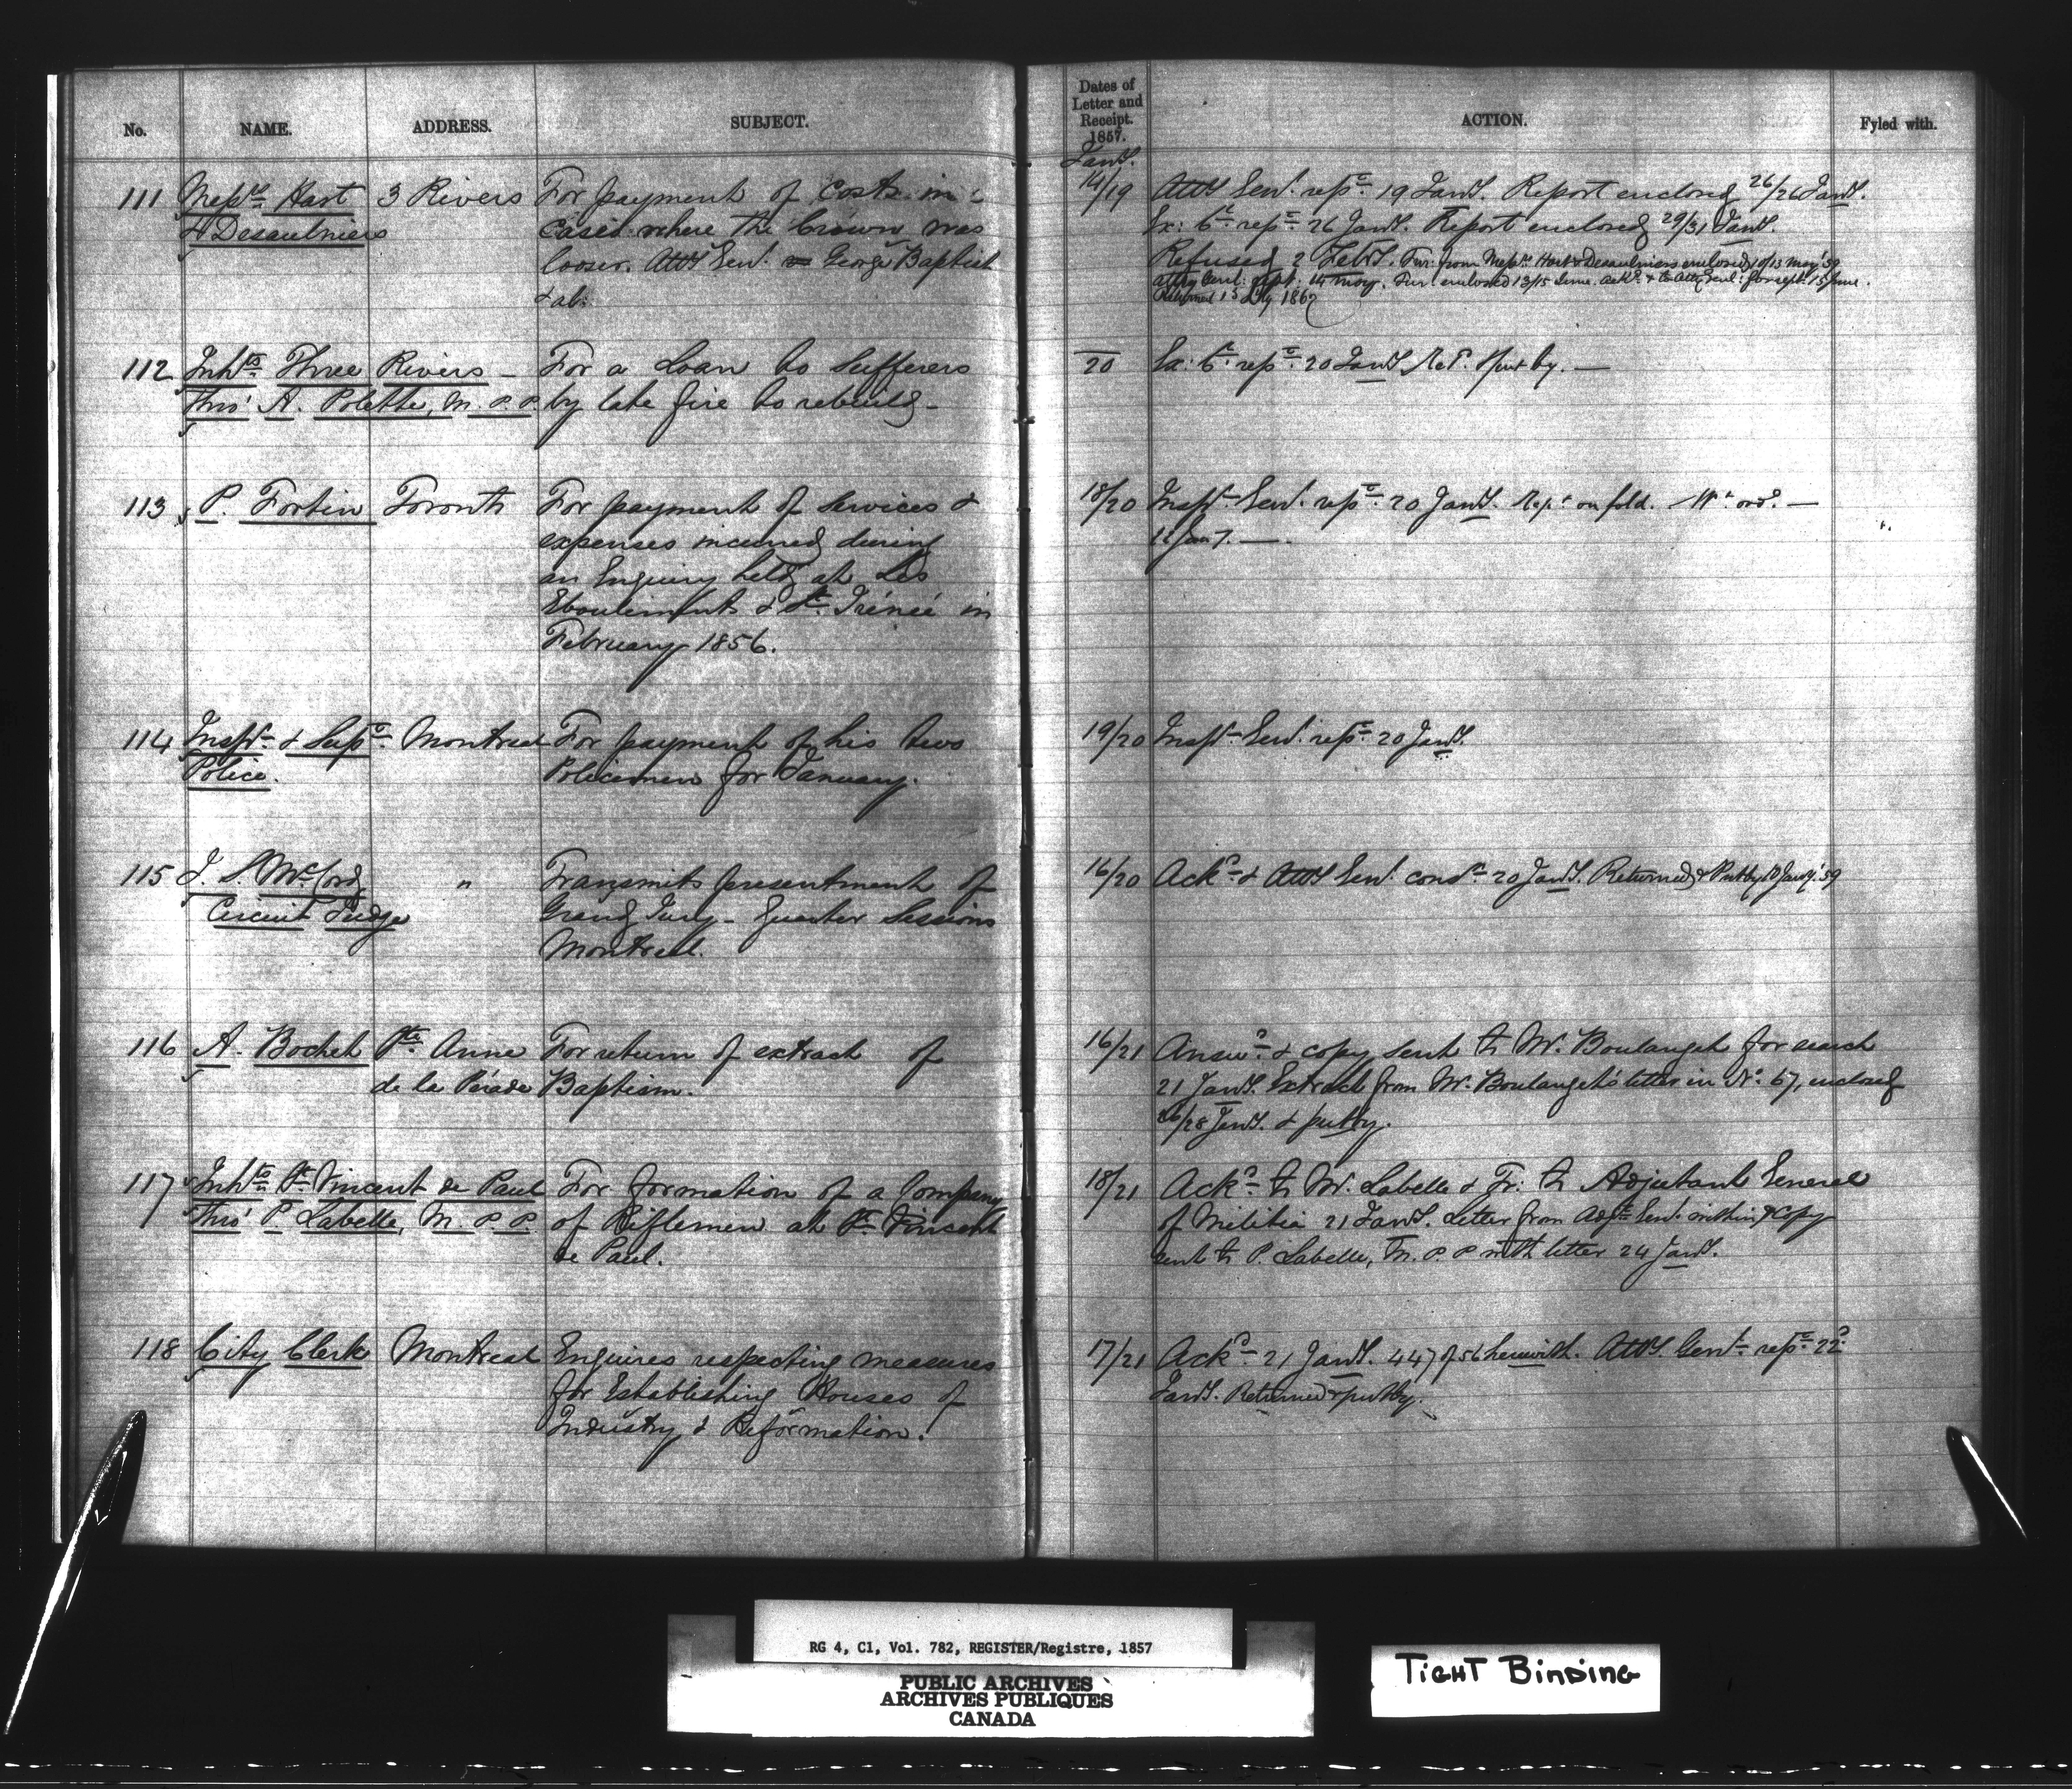 No. NAME. ADDRESS. SUBJECT.
Dates of
Letter and
Receipt.
1857.
ACTION. Fyled with.
Jany.
111 Messrs Hart 3 Rivers For payment of Costs in
& Desaulniers cases where the Crown was
looser. Atty Genl. vs George Baptist
& al:
14/19 Atty Genl. repce 19 Jany. Report enclosed 26/26 Jany.
Ex: Cl repce 26 Jany. Report enclosed 29/31 Jany.
Refused 2 Feby. Fur: from Messrs Hart & Desaulniers enclosed 10/13 May '59
Atty Genl: rept. 14 May. Fur. enclosed 13/15 June. Ackd. & to Atty Genl: for rept. 15 June.
Returned 15 1862
112 Inhts Three Rivers - For a Loan to Sufferers
Thro' A. Polette, M.P.P. by late fire to rebuild -
20 Ex: Cl repce 20 Jany. Put by. —
113 P. Fortin Toronto For payment of Services &
expenses incurred during
an Enquiry held at Les
Eboulements & St. Irénée in
February 1856.
18/20 Inspr Genl. repce 20 Jany. Rept on fold. Wt ord. —
114 Inspr & Supt Montreal For payment of his two
Police. Policemen for January.
19/20 Inspr Genl. repce 20 Jany.
115 J. S. McCord, " Transmits presentment of
Circuit Judge Grand Jury - Quarter Sessions
Montreal.
16/20 Ackd & Atty Genl consd 20 Jany. Returned & Put by 10 Jany. '59
116 A. Bochet Ste Anne For return of extract of
de la Pérade Baptism.
16/21 Answd & copy sent to Mr. Boulanget for search
21 Jany. Extract from Mr. Boulanget's letter in No. 67, enclosed
26/28 Jany. & put by.
117 Inhts St Vincent de Paul For formation of a Company
Thro' P. Labelle, M.P.P of Riflemen at St Vincent
de Paul.
18/21 Ackd to Mr. Labelle & Tr: to Adjutant General
of Militia 21 Jany. Letter from Adjt Genl. within & copy
sent to P. Labelle, M.P.P with letter 24 Jany.
118 City Clerk Montreal Enquires respecting measures
for Establishing Houses of
Industry & Reformation.
17/21 Ackd 21 Jany. 447 of 56 herewith. Atty. Genl repce 22d
Jany. Returned & put by.
RG 4, C1, Vol. 782, REGISTER/Registre, 1857
PUBLIC ARCHIVES
ARCHIVES PUBLIQUES
CANADA
TIGHT BINDING